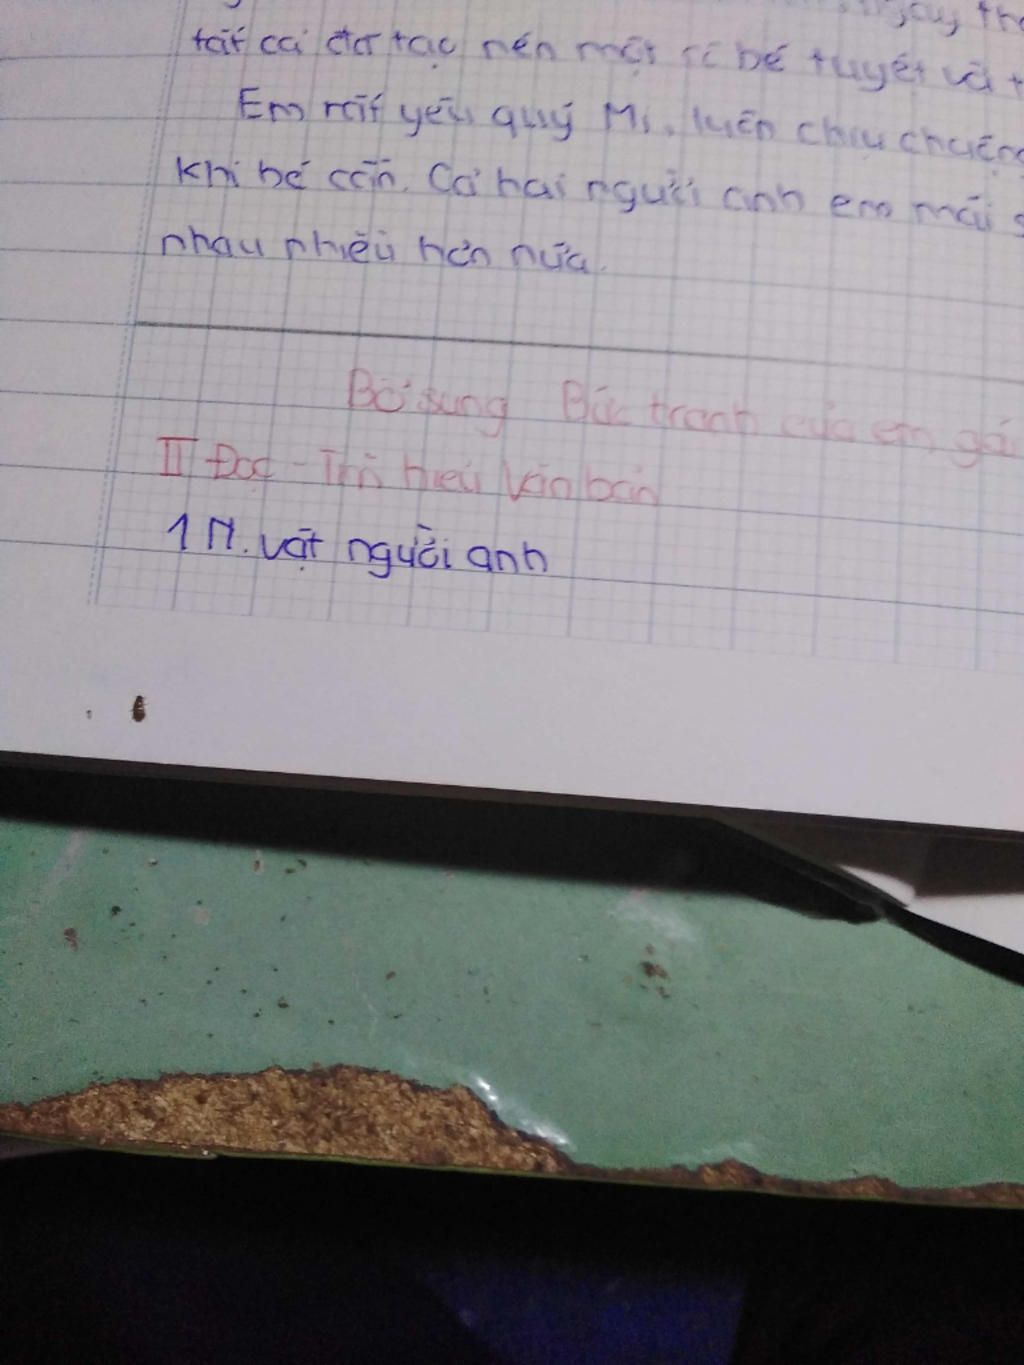 tất cả đã tạo nên một cô bé tuyệt và
Em rất yêu quý Mi, luôn chịu
khi bé cần. Cả hai người anh em mãi
nhau nhiều hơn nữa.
Bổ sung Bức tranh của em gái
II Đọc - Tìm hiểu văn bản
1 N. vật người anh